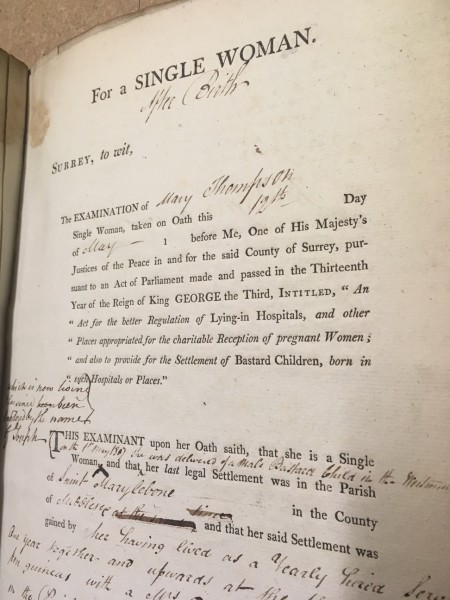 For a SINGLE WOMAN.
After Birth
SURREY, to wit,
The EXAMINATION of Mary Thompson
Single Woman, taken on Oath this 19th Day
of May 1 before Me, One of His Majesty's
Justices of the Peace in and for the said County of Surrey, pur-
suant to an Act of Parliament made and passed in the Thirteenth
Year of the Reign of King GEORGE the Third, INTITLED, " An
" Act for the better Regulation of Lying-in Hospitals, and other
" Places appropriated for the charitable Reception of pregnant Women;
" and also to provide for the Settlement of Bastard Children, born in
" such Hospitals or Places."
which is now living
been
by the name
Joseph
THIS EXAMINANT upon her Oath saith, that she is a Single
on the 1st May she was delivered of a Male Bastard Child in the
Woman, and that her last legal Settlement was in the Parish
of Saint Marylebone in the County
of and that her said Settlement was
gained by her having lived as a Yearly hired
One year together and upwards at the
guineas with a Mrs
in the